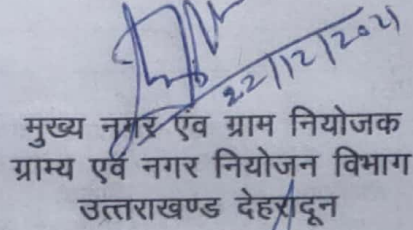 22/12/2021
मुख्य नगर एंव ग्राम नियोजक
ग्राम्य एवं नगर नियोजन विभाग
उत्तराखण्ड देहरादून